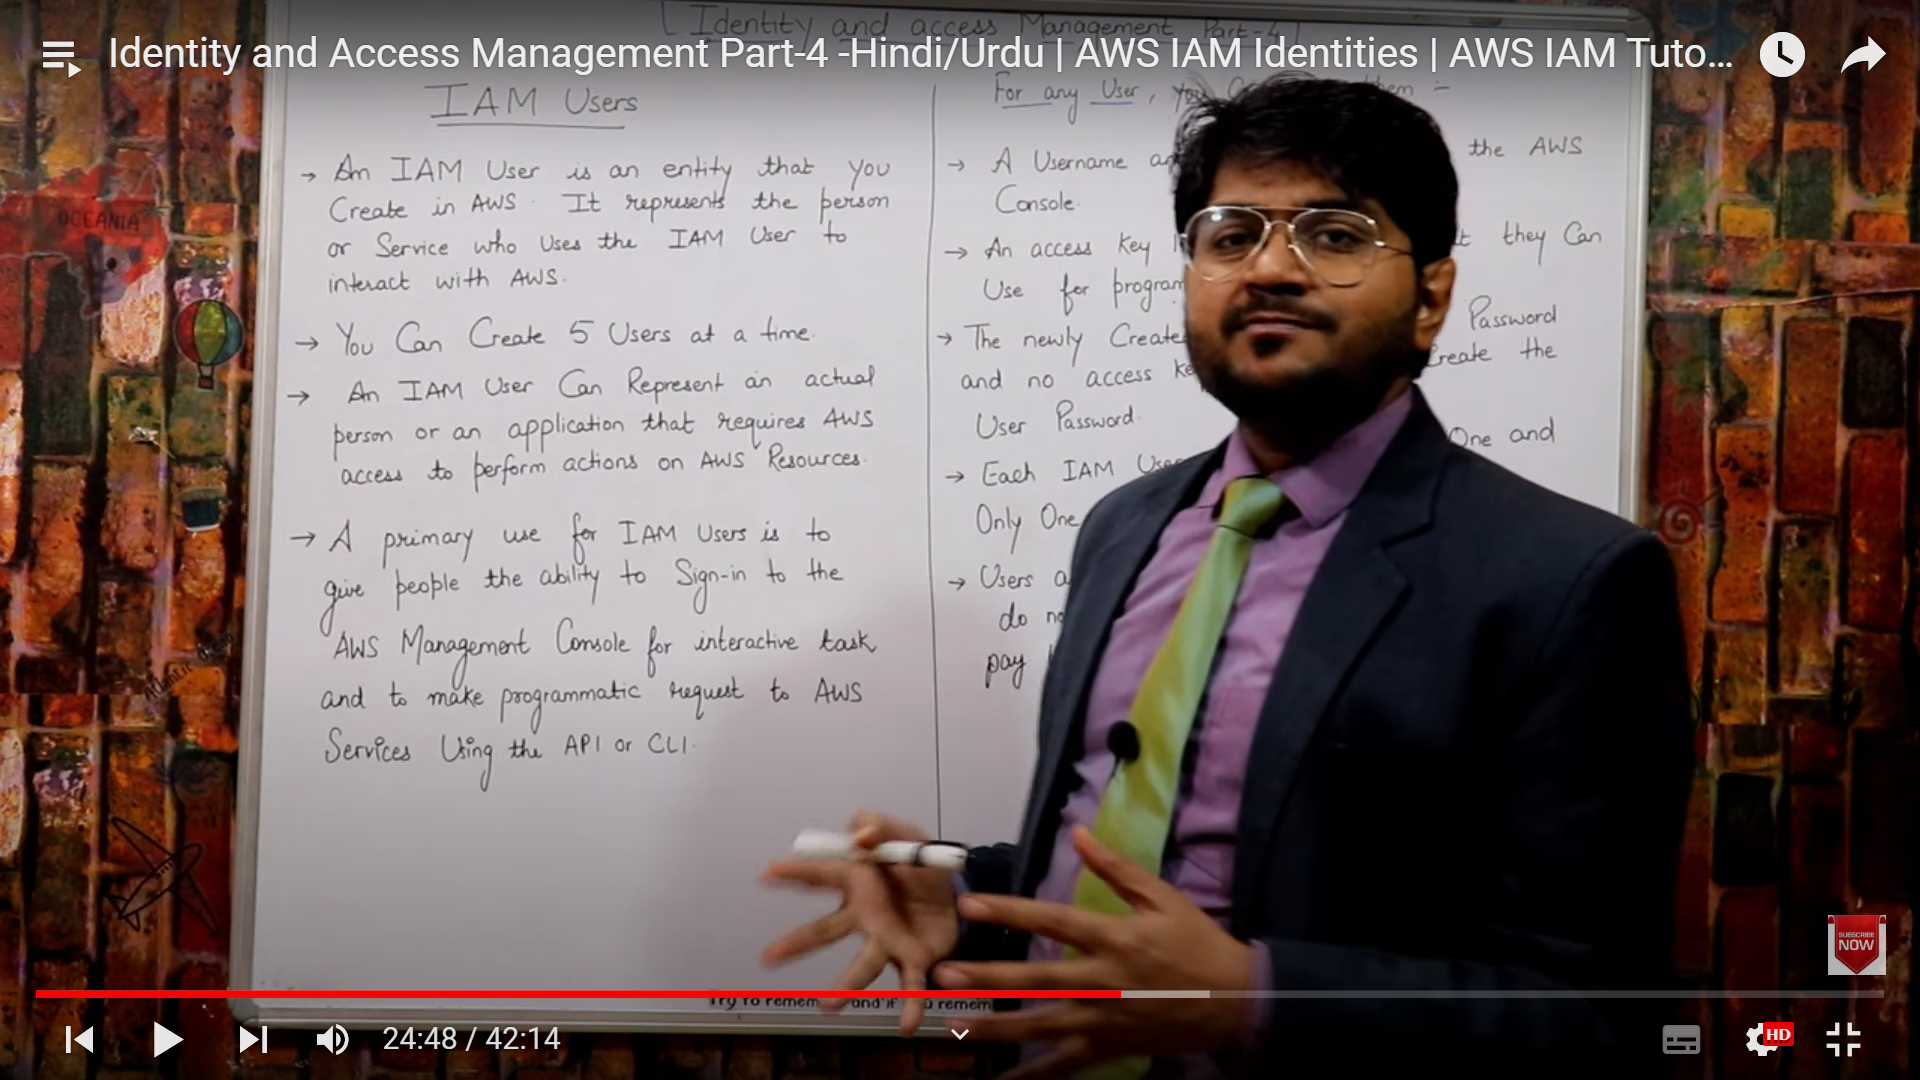 [ Identity and access Management Part-4 ]
Identity and Access Management Part-4 -Hindi/Urdu | AWS IAM Identities | AWS IAM Tuto...
IAM Users
→ An IAM User is an entity that you
Create in AWS. It represents the person
or Service who uses the IAM User to
interact with AWS.
→ You Can Create 5 Users at a time.
→ An IAM User Can Represent an actual
person or an application that requires AWS
access to perform actions on AWS Resources.
→ A primary use for IAM Users is to
give people the ability to Sign-in to the
AWS Management Console for interactive task
and to make programmatic request to AWS
Services Using the API or CLI.
For any User, you
→ A Username the AWS
Console.
→ An access Key they Can
Use for
→ The newly Password
and no access Create the
User Password.
→ Each IAM One and
Only One
→ Users
do
pay
OCEANIA
Try to and if
SUBSCRIBE
NOW
24:48 / 42:14
HD